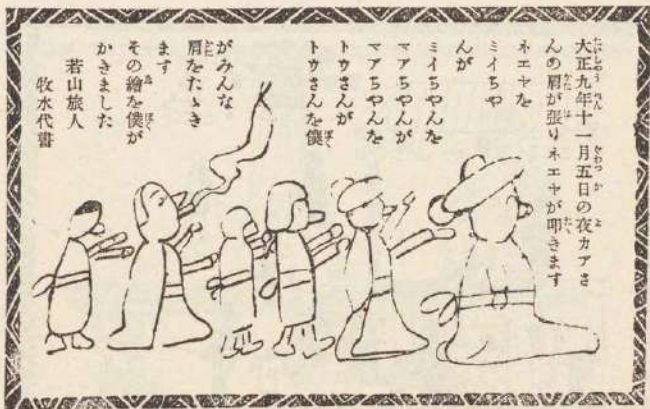 大正九年十一月五日の夜カアさ
んの肩が張りネエヤが叩きます
ネエヤを
ミイちや
んが
ミイちやんを
マアちやんが
マアちやんを
トウさんが
トウさんを僕
がみんな
肩をたゝき
ます
その繪を僕が
かきました
若山旅人
牧水代書